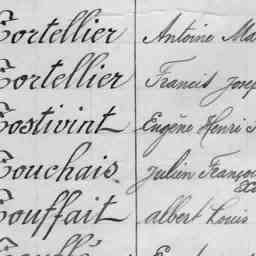 Cortellier Antoine Ma
Cortellier Francis Josep
Costivint Eugène Henri
Couchais Julien Franço
Couffait albert Louis